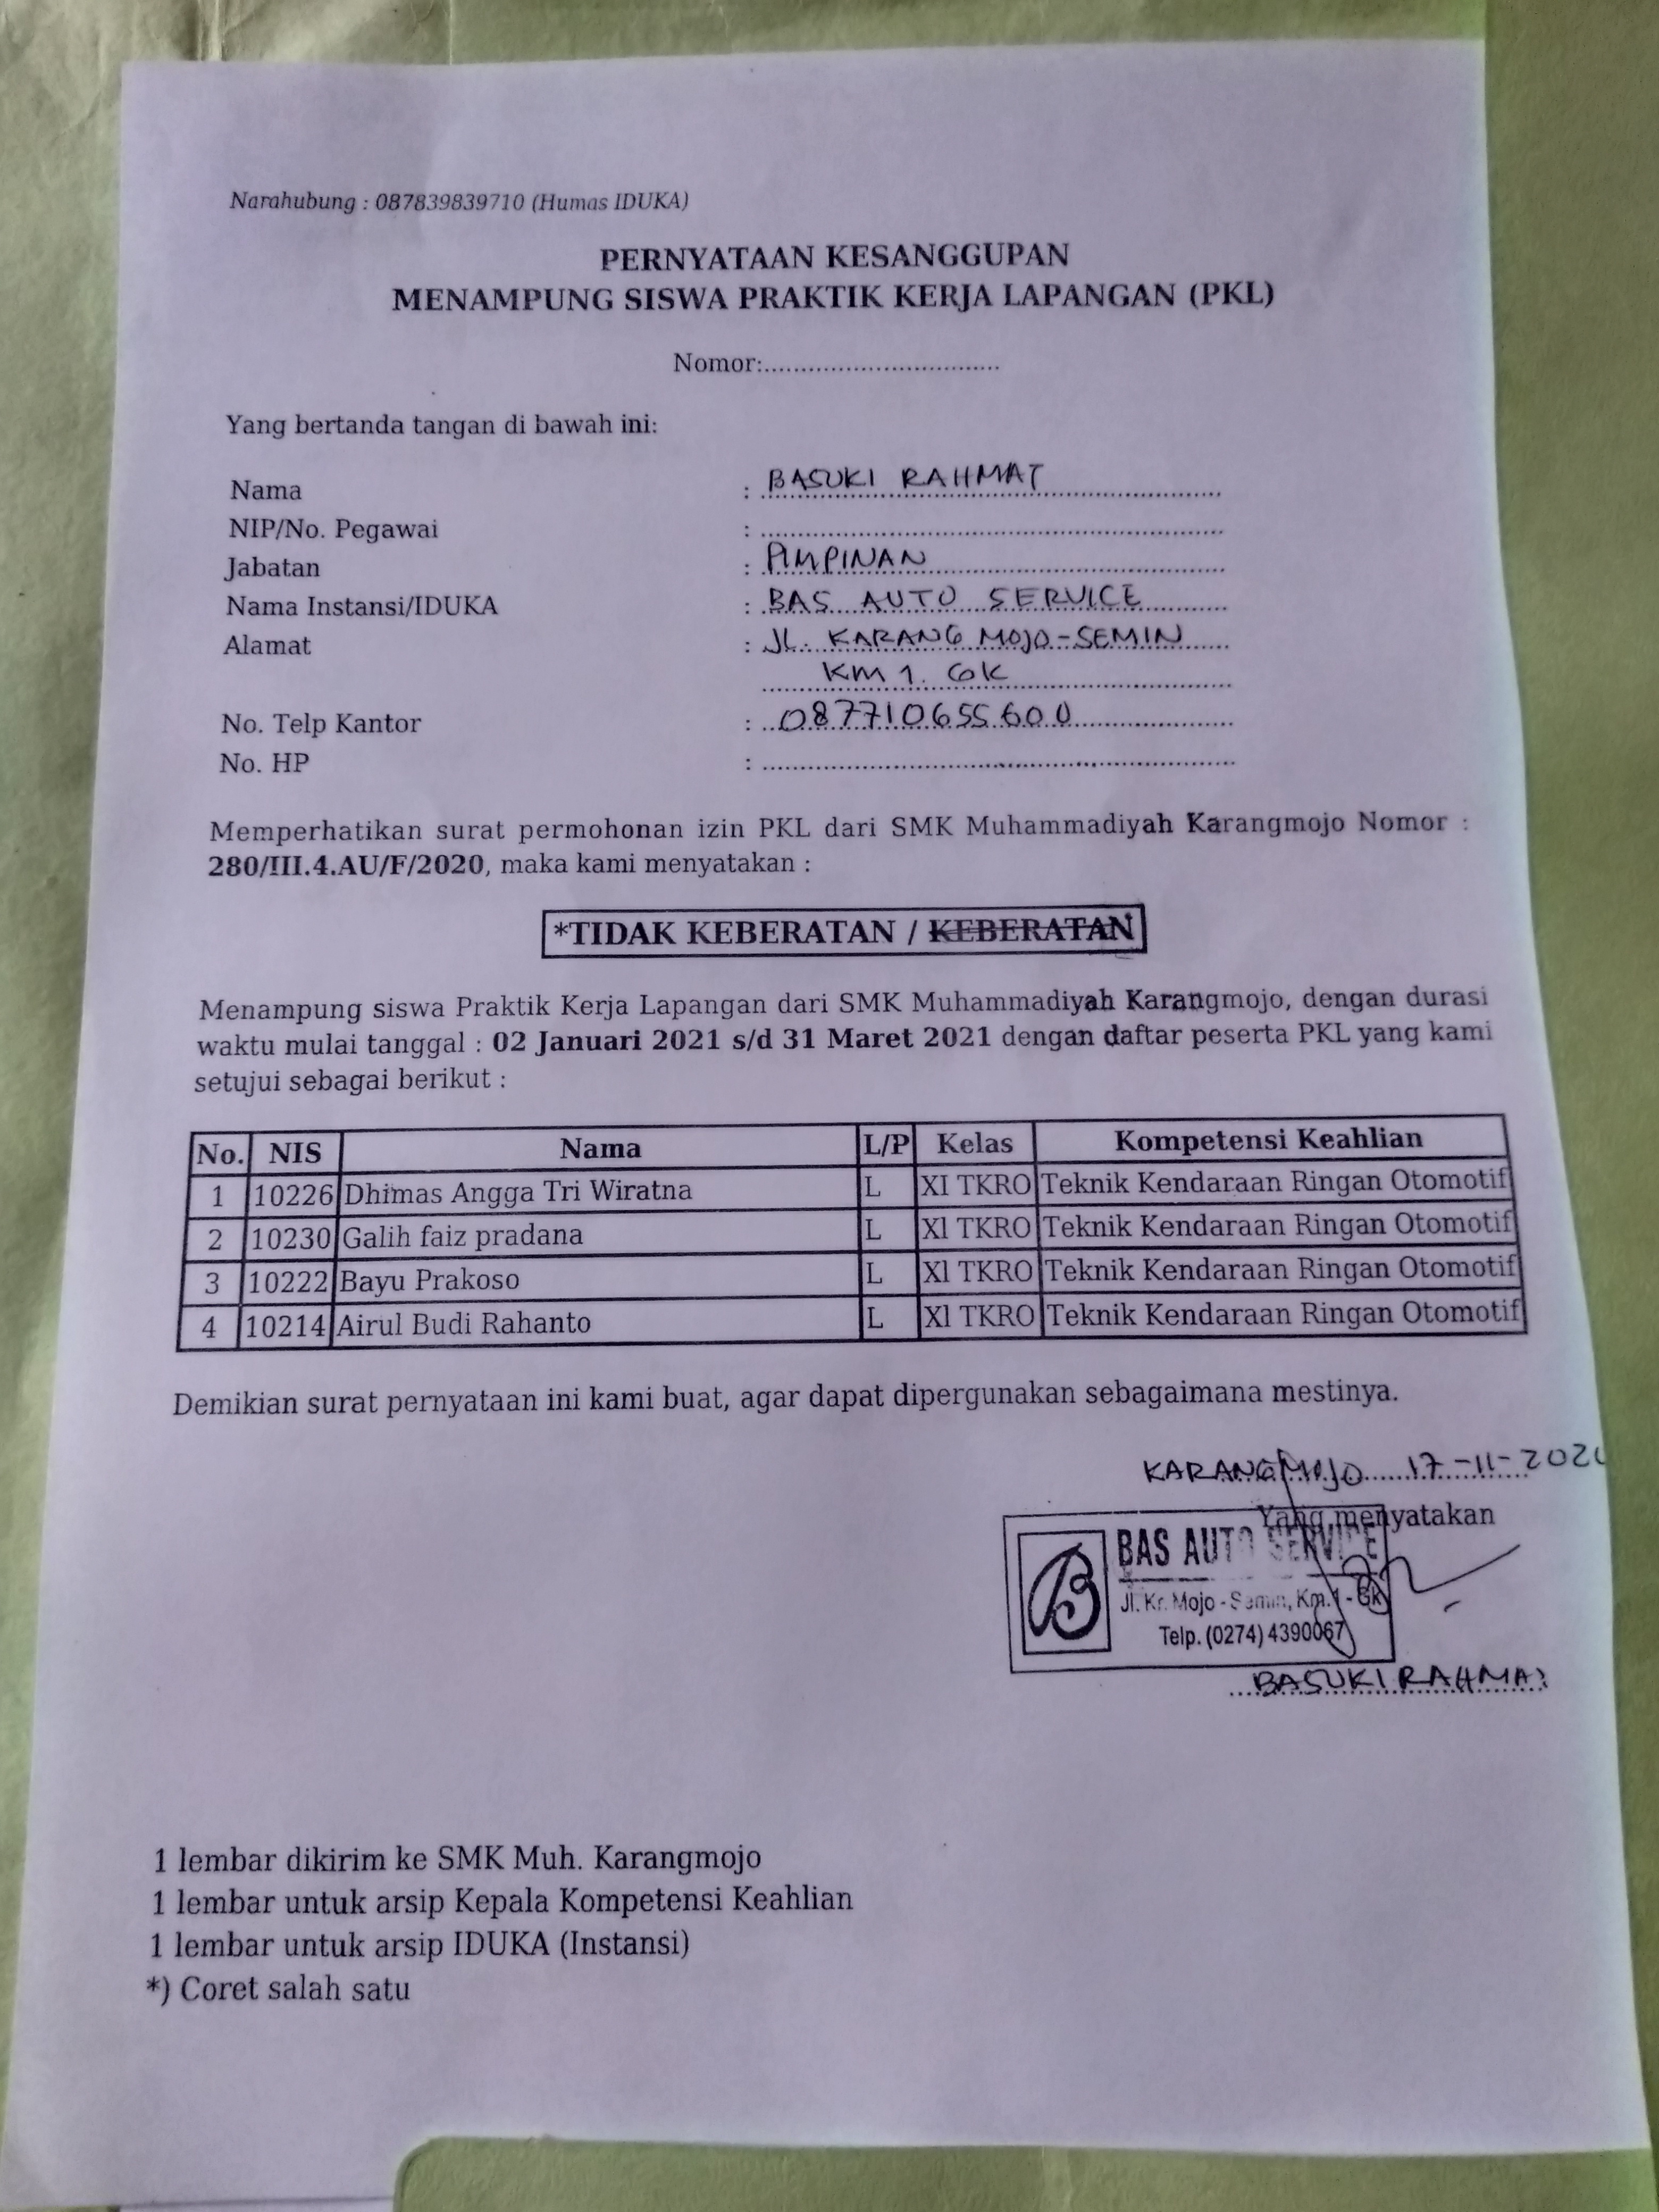 Narahubung : 087839839710 (Humas IDUKA)
PERNYATAAN KESANGGUPAN
MENAMPUNG SISWA PRAKTIK KERJA LAPANGAN (PKL)
Nomor:................................
Yang bertanda tangan di bawah ini:
Nama : BASUKI RAHMAT
NIP/No. Pegawai :
Jabatan : PIMPINAN
Nama Instansi/IDUKA : BAS AUTO SERVICE
Alamat : JL. KARANG MOJO-SEMIN
KM 1. GK
No. Telp Kantor : 087710655600
No. HP :
Memperhatikan surat permohonan izin PKL dari SMK Muhammadiyah Karangmojo Nomor :
280/III.4.AU/F/2020, maka kami menyatakan :
*TIDAK KEBERATAN / KEBERATAN
Menampung siswa Praktik Kerja Lapangan dari SMK Muhammadiyah Karangmojo, dengan durasi
waktu mulai tanggal : 02 Januari 2021 s/d 31 Maret 2021 dengan daftar peserta PKL yang kami
setujui sebagai berikut :
No. NIS Nama L/P Kelas Kompetensi Keahlian
1 10226 Dhimas Angga Tri Wiratna L XI TKRO Teknik Kendaraan Ringan Otomotif
2 10230 Galih faiz pradana L Xl TKRO Teknik Kendaraan Ringan Otomotif
3 10222 Bayu Prakoso L Xl TKRO Teknik Kendaraan Ringan Otomotif
4 10214 Airul Budi Rahanto L Xl TKRO Teknik Kendaraan Ringan Otomotif
Demikian surat pernyataan ini kami buat, agar dapat dipergunakan sebagaimana mestinya.
KARANGMOJO 17-11-2020
Yang menyatakan
BAS AUTO SERVICE
Jl. Kr. Mojo - Semin, Km.1 - Gk
Telp. (0274) 4390067
BASUKI RAHMAT
1 lembar dikirim ke SMK Muh. Karangmojo
1 lembar untuk arsip Kepala Kompetensi Keahlian
1 lembar untuk arsip IDUKA (Instansi)
*) Coret salah satu